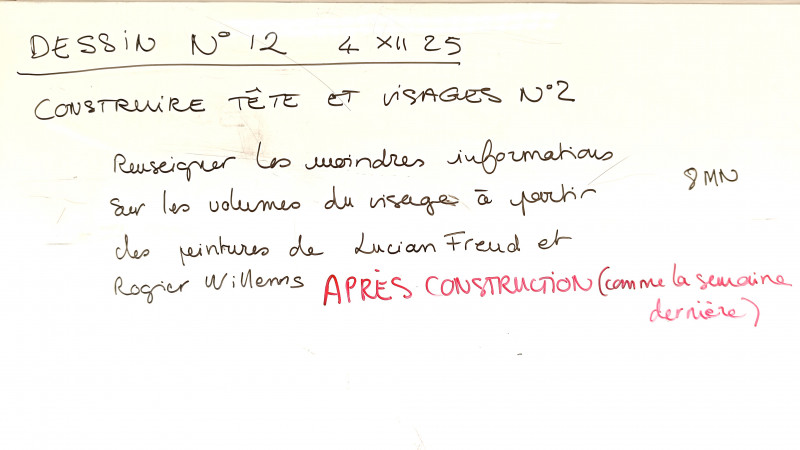 DESSIN N° 12 4 XII 25
CONSTRUIRE TÊTE ET VISAGES N°2
Renseigner les moindres informations
sur les volumes du visage à partir
8 MN
des peintures de Lucian Freud et
Rogier Willems APRÈS CONSTRUCTION (comme la semaine
dernière)